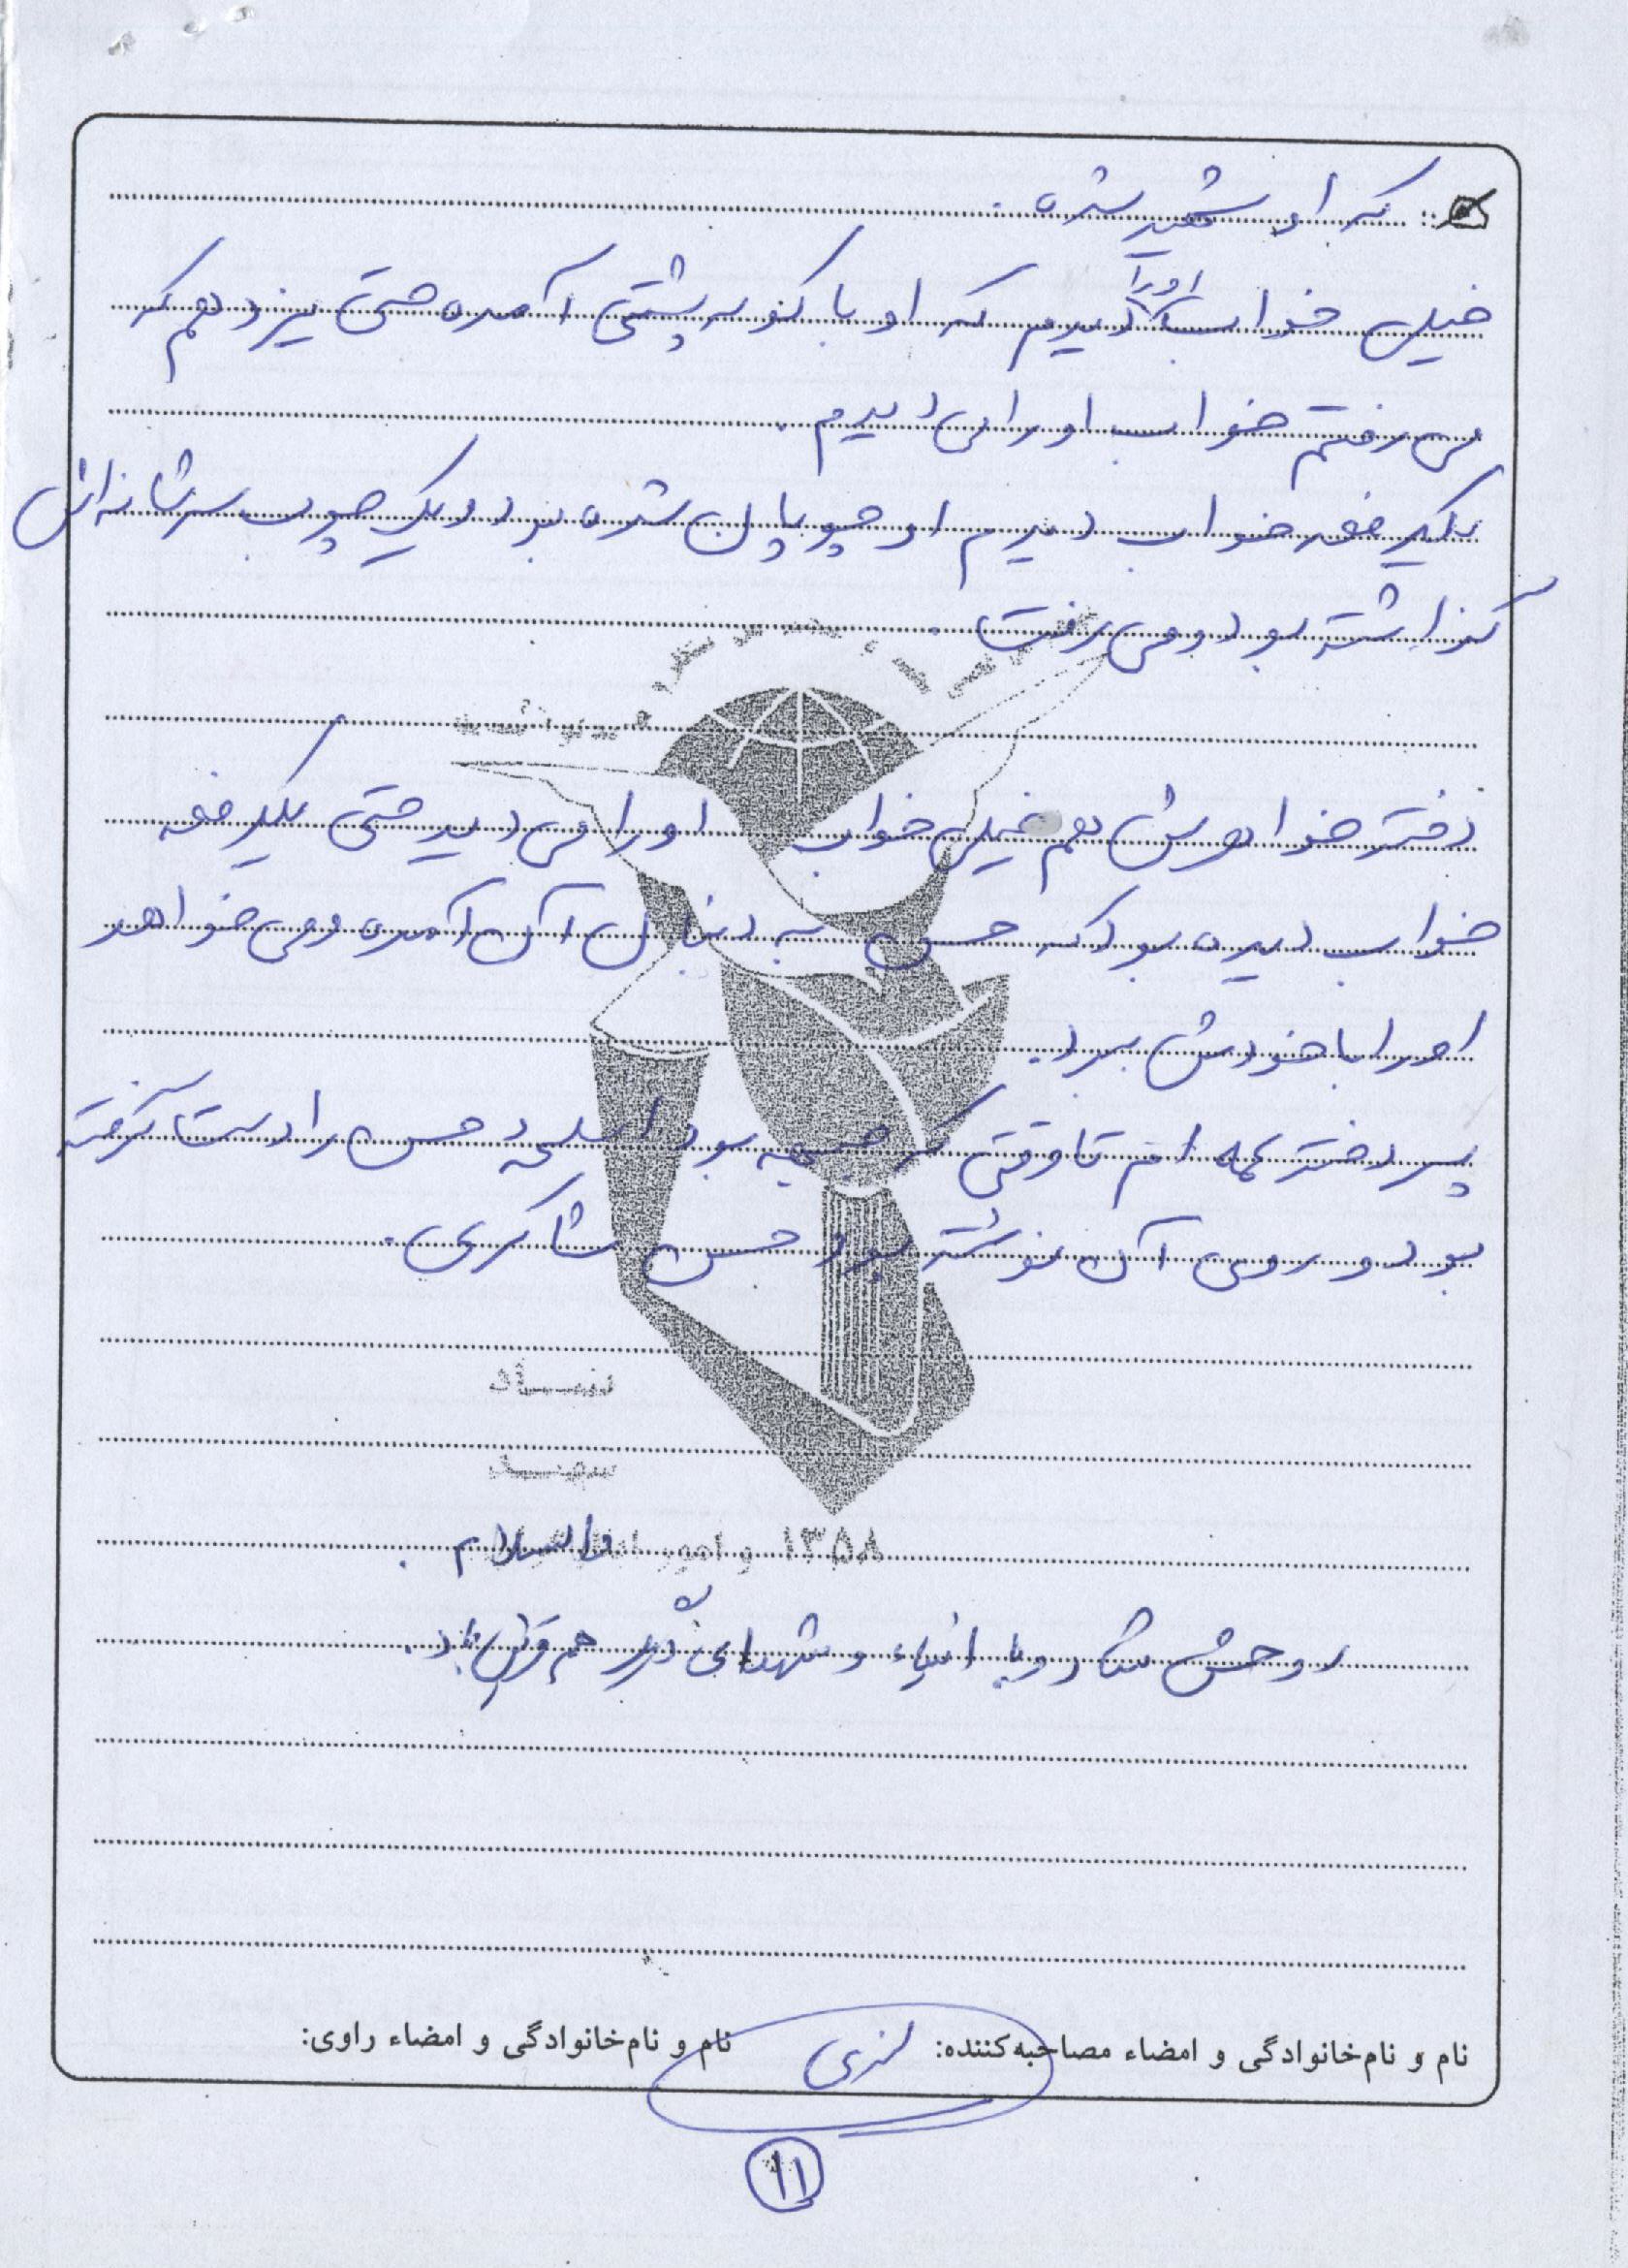 که او شهید شده.
خیلی خواب او را دیدم که او با کوله پشتی آمده حتی یزد هم که
می رفتم خواب او را می دیدم.
یکدفعه خواب دیدم او چوپان شده بود و یک چوب سرشانه اش
گذاشته بود و می رفت.
دختر خواهرش هم خیلی خواب او را می دید حتی یکدفعه
خواب دیده بود که حسن به دنبال آن آمده و می خواهد
او را با خودش ببرد.
پسر دختر عمه ام تا وقتی که جبهه بود اسلحه حسن را دست گرفته
بود و روی آن نوشته بود حسن شاکری.
بنیاد
شهید
و امور ۱۳۵۸
والسلام.
روحش شاد و با انبیاء و شهدای هم قرین باد.
نام و نام‌خانوادگی و امضاء مصاحبه‌کننده: نام و نام‌خانوادگی و امضاء راوی:
۱۱